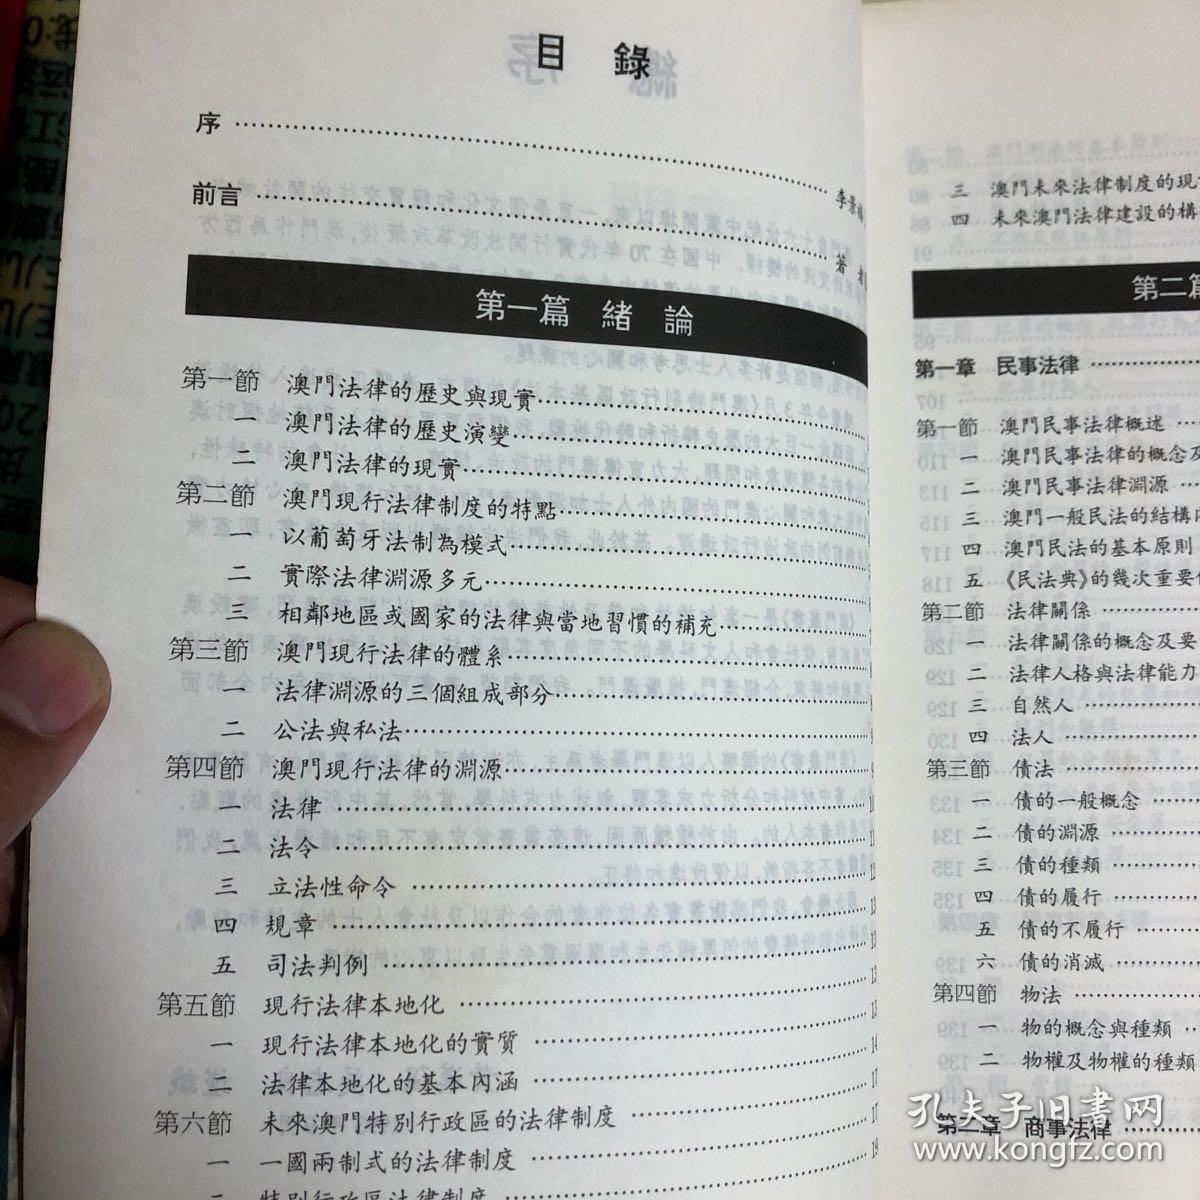 目 錄
序
李景
前言
著 者
第一篇 緒 論
第一節 澳門法律的歷史與現實
一 澳門法律的歷史演變
二 澳門法律的現實
第二節 澳門現行法律制度的特點
一 以葡萄牙法制為模式
二 實際法律淵源多元
三 相鄰地區或國家的法律與當地習慣的補充 7
第三節 澳門現行法律的體系 8
一 法律淵源的三個組成部分 8
二 公法與私法 9
第四節 澳門現行法律的淵源 9
一 法律 10
二 法令 11
三 立法性命令 12
四 規章 13
五 司法判例 13
第五節 現行法律本地化 13
一 現行法律本地化的實質 14
二 法律本地化的基本內涵 17
第六節 未來澳門特別行政區的法律制度 17
一 一國兩制式的法律制度 19
二 特別行政區法律制度
三 澳門未來法律制度的現
四 未來澳門法律建設的構
第二篇
第一章 民事法律
第一節 澳門民事法律概述
一 澳門民事法律的概念及
二 澳門民事法律淵源
三 澳門一般民法的結構
四 澳門民法的基本原則
五 《民法典》的幾次重要
第二節 法律關係
一 法律關係的概念及要
二 法律人格與法律能力
三 自然人
四 法人
第三節 債法
一 債的一般概念
二 債的淵源
三 債的種類
四 債的履行
五 債的不履行
六 債的消滅
第四節 物法
一 物的概念與種類
二 物權及物權的種類
第二章 商事法律
孔夫子旧书网
www.kongfz.com